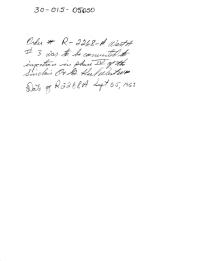 30-015-05650
Order # R-2268-A West A
# 3 was to be converted to
injection in phase III of the
Sinclair Oil &
Date of R2268A Sept 25, 1963